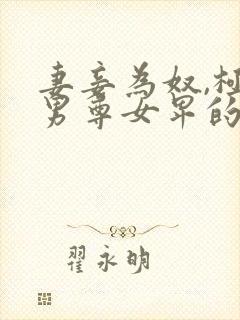 妻妾為奴,極
男尊女卑的
翟永明